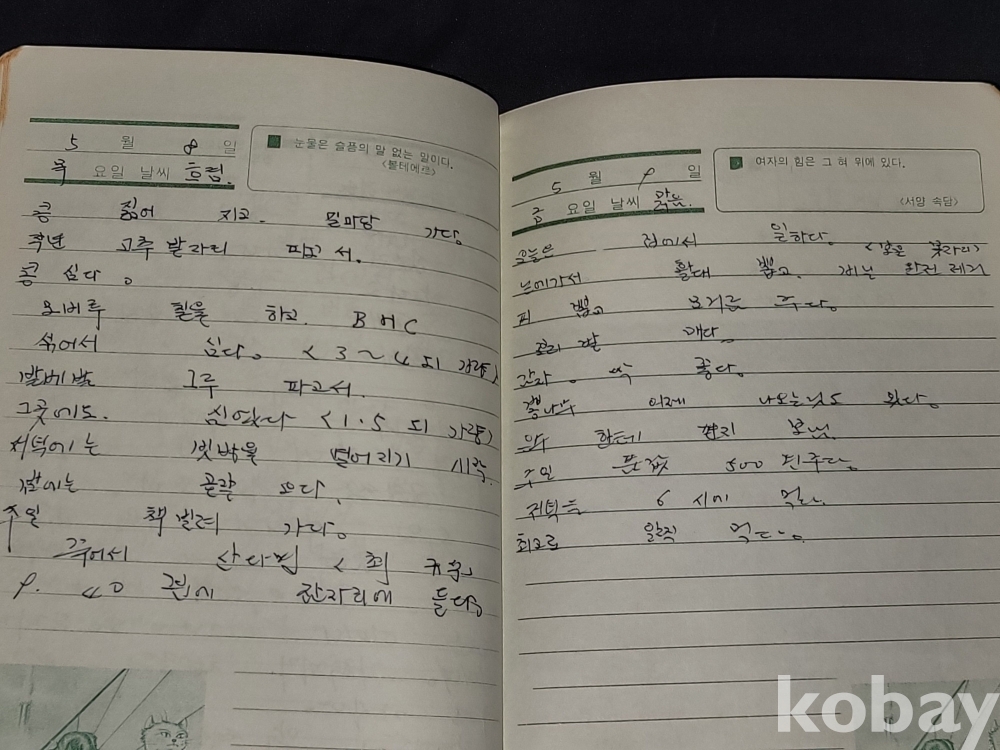 5 월 8 일
목 요일 날씨 흐림.
눈물은 슬픔의 말 없는 말이다.
<볼테에르>
콩 짊어 지고. 밀마당 가다.
작년 고추 밭자리 파고서.
콩 심다.
하고. BHC
섞어서 심다. <3~4되 가량>
그루 파고서.
그곳에도. 심었다 <1.5 되 가량>
저녁에는 빗방울 떨어지기 시작
밤에는 오다.
주일 책 빌려 가다.
죽어서 산다며 <최
9. 40 분에 잠자리에 들다.
5 월 9 일
금 요일 날씨 맑음.
여자의 힘은 그 혀 위에 있다.
<서양 속담>
오늘은 집에서 일하다.
논에가서 뽑고.
피 뽑고 주다.
보리 밭 매다.
감자. 싹 좋다.
뽕나무 이제 나오는것도 있다.
한테 편지 보냄.
주일 500 원주다.
저녁은 6 시에 먹다.
최고로 일찍 먹는다.
kobay